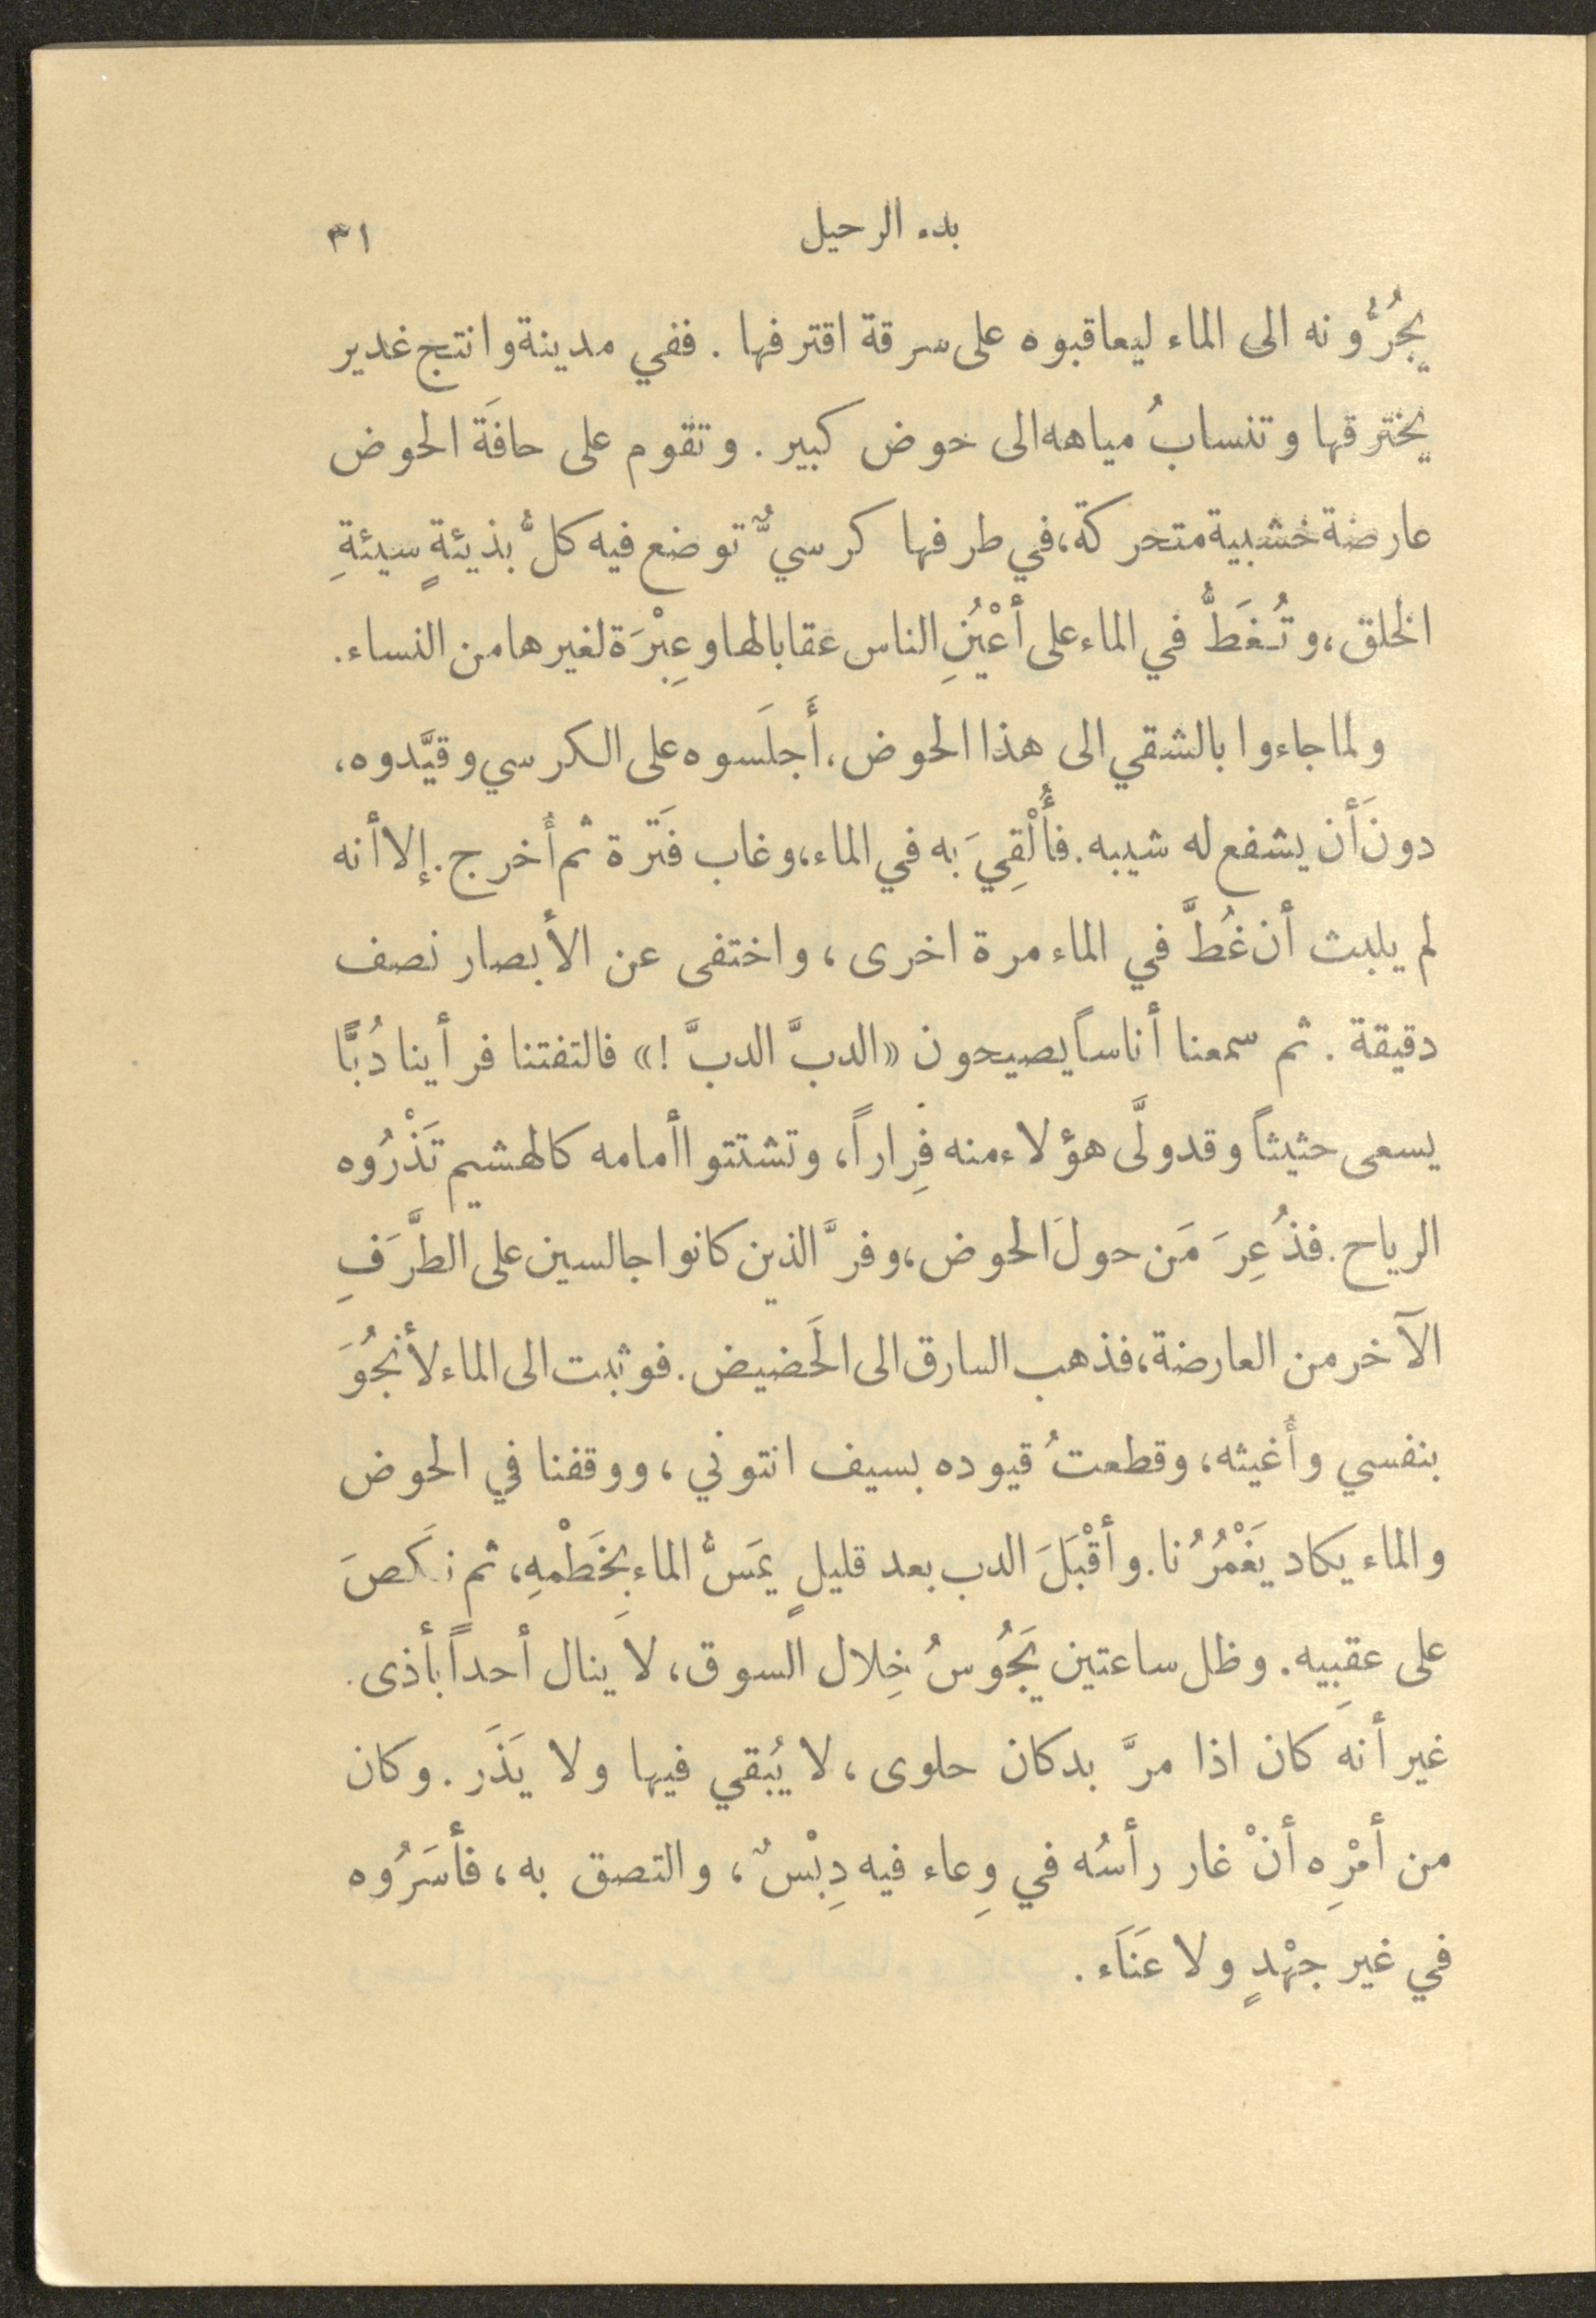 بدء الرحيل ٣١
يجُرُّونه الى الماء ليعاقبوه على سرقة اقترفها . ففي مدينة وانتج غدير
يخترقها وتنسابُ مياهه الى حوض كبير . وتقوم على حافَة الحوض
عارضة خشبية متحركة، في طرفها كرسيٌّ توضع فيه كلُّ بذيئةٍ سيئةِ
الخلق، وتُغَطُّ في الماء على أعْيُنِ الناس عقابا لها وعِبْرَة لغيرها من النساء.
ولما جاءوا بالشقي الى هذا الحوض، أَجلَسوه على الكرسي وقيَّدوه،
دونَ أن يشفع له شيبه. فأُلْقِيَ به في الماء، وغاب فَتَرة ثم أُخرج. إلا أنه
لم يلبث أن غُطَّ في الماء مرة اخرى ، واختفى عن الأبصار نصف
دقيقة . ثم سمعنا أناساً يصيحون «الدبَّ الدبَّ !» فالتفتنا فرأينا دُبًّا
يسعى حثيثاً وقد ولَّى هؤلاء منه فِراراً، وتشتتوا أمامه كالهشيم تَذْرُوه
الرياح. فذُعِرَ مَن حولَ الحوض، وفرَّ الذين كانوا جالسين على الطَّرَفِ
الآخر من العارضة، فذهب السارق الى الحَضيض. فوثبت الى الماء لأنجُوَ
بنفسي وأُغيثه، وقطعتُ قيوده بسيف انتوني ، ووقفنا في الحوض
والماء يكاد يَغْمُرُنا. وأقْبَلَ الدب بعد قليلٍ يمَسُّ الماء بِخَطْمهِ، ثم نَكَصَ
على عقبيه. وظل ساعتين يَجُوسُ خِلال السوق، لا ينال أحداً بأذى.
غير أنه كان اذا مرَّ بدكان حلوى ، لا يُبقي فيها ولا يَذَر . وكان
من أمْرِه أنْ غار رأسُه في وِعاء فيه دِبْسٌ، والتصق به، فأسَرُوه
في غير جهْدٍ ولا عَنَاء .